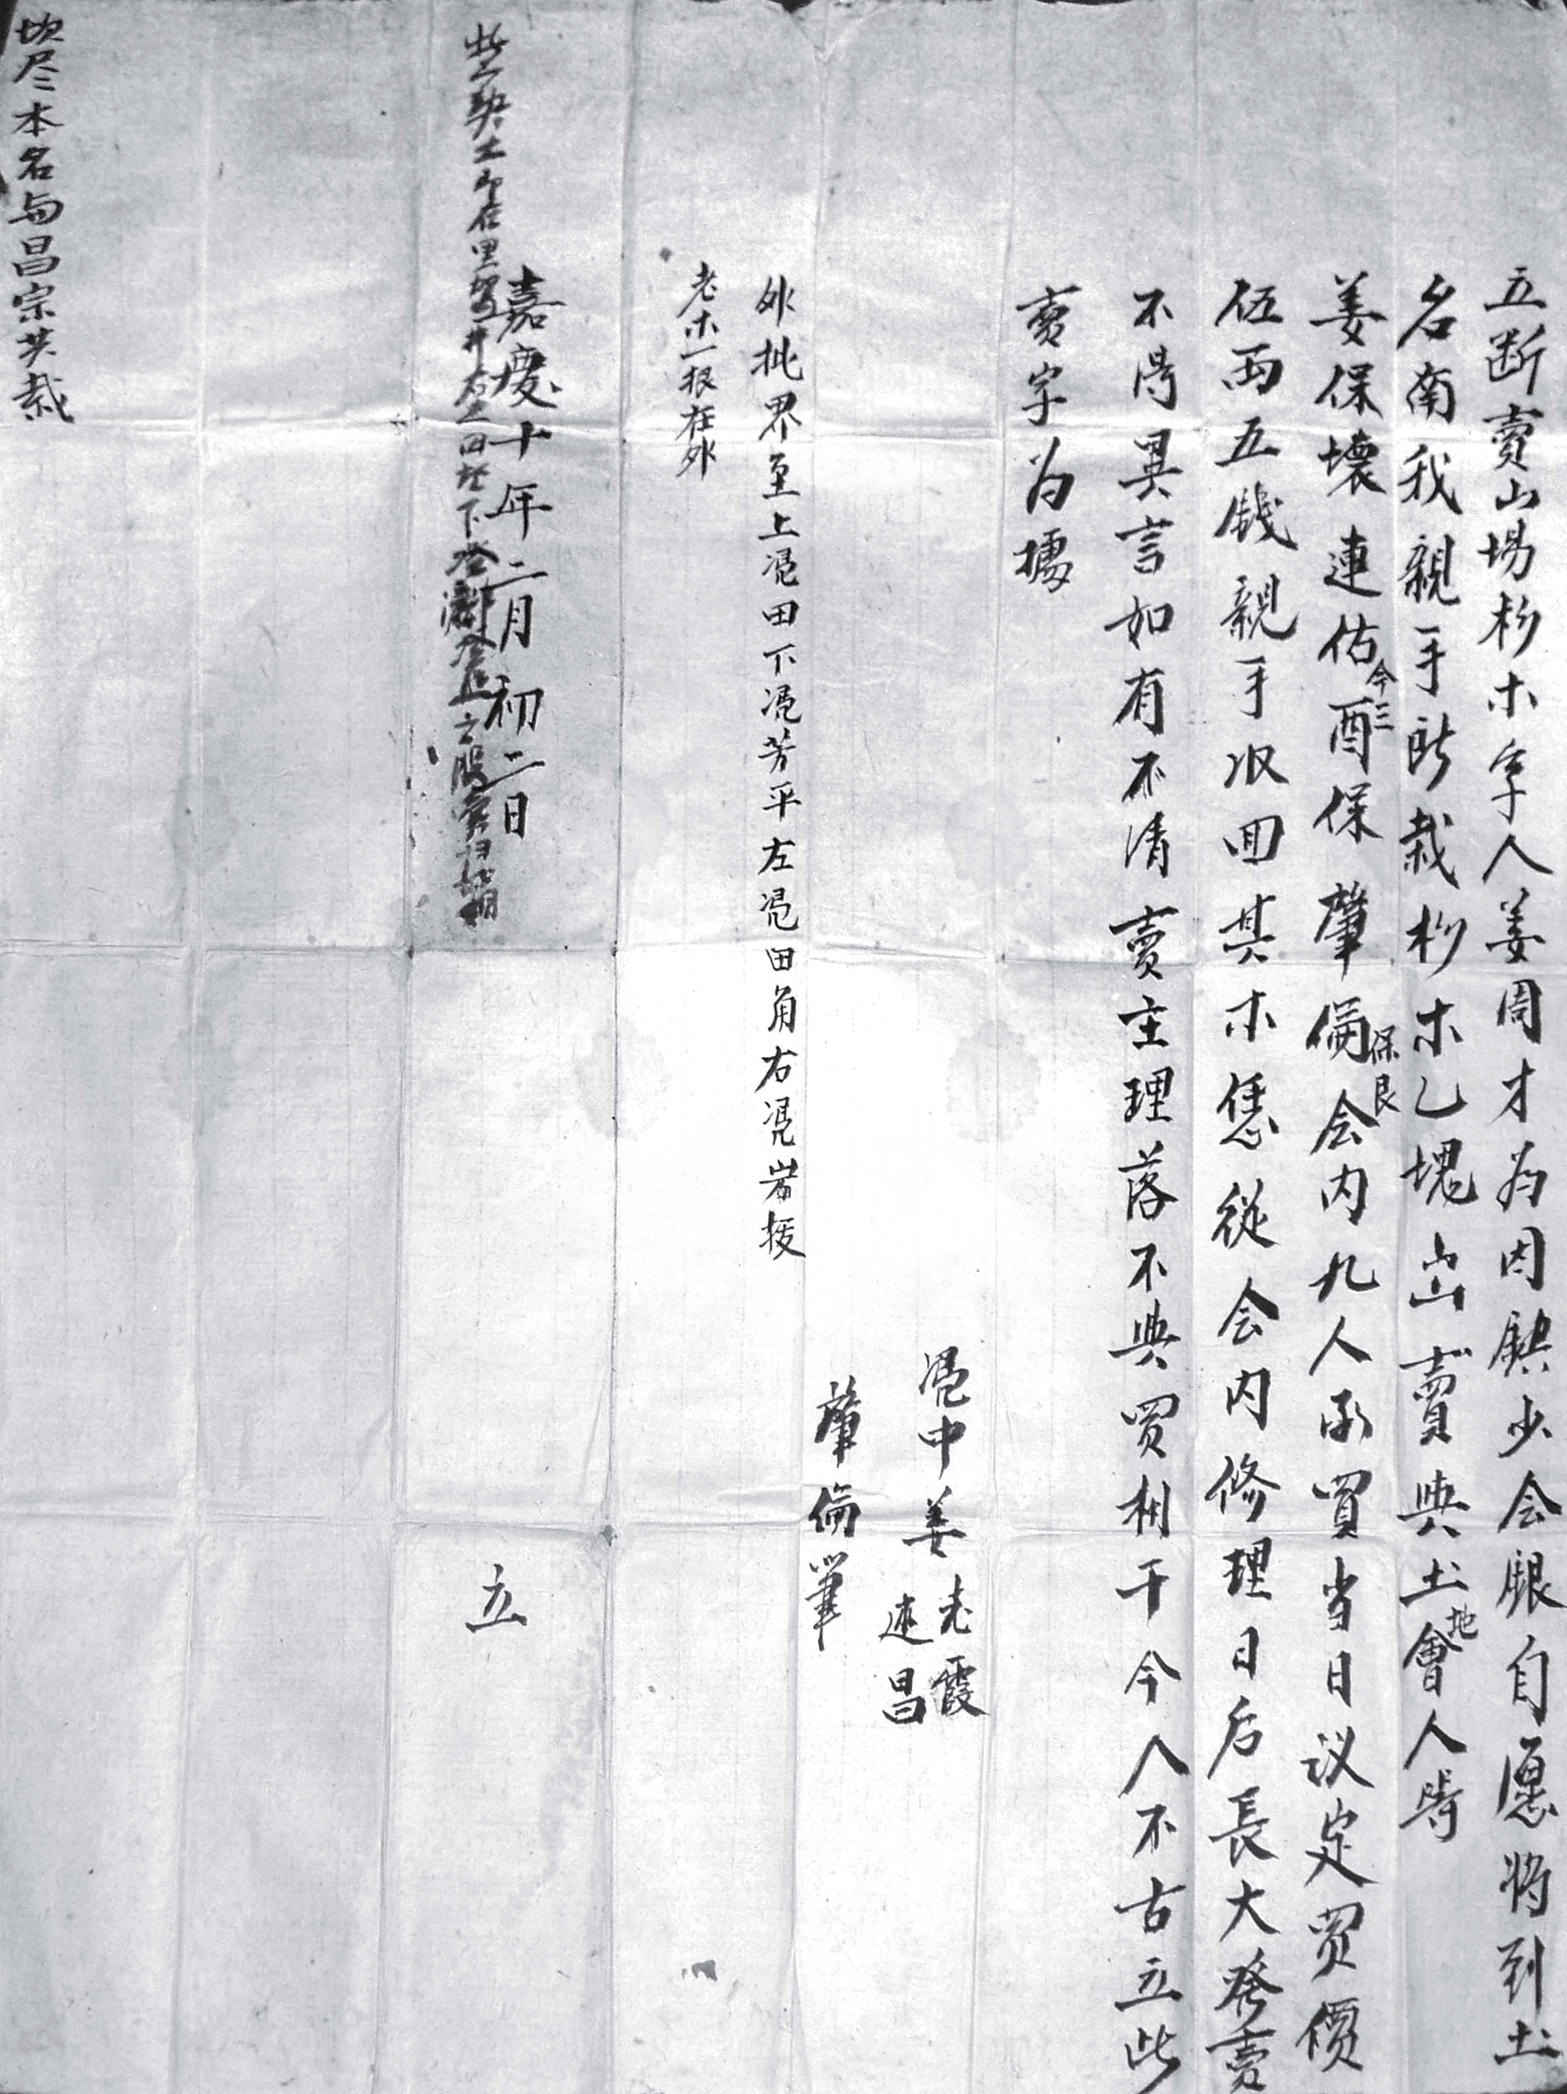 立断賣山場杉木字人姜周才為因缺少会銀自愿将到土
名南我親手所栽杉木乙塊出賣與土地會人等
姜保壞連佑今三酉保肇倫保良会内九人承買当日议定买價
伍両五錢親手収囬其木恁從会内修理日后長大發賣
不得異言如有不清賣主理落不與买相干今人不古立此
賣字为據
凴中姜老霞
述昌
肇倫筆
外批界至上凴田下凴芳平左凴田角右凴岩
老木一根在外
嘉慶十年二月初二日立
此契土即在里
坎尽本名与昌宗共栽